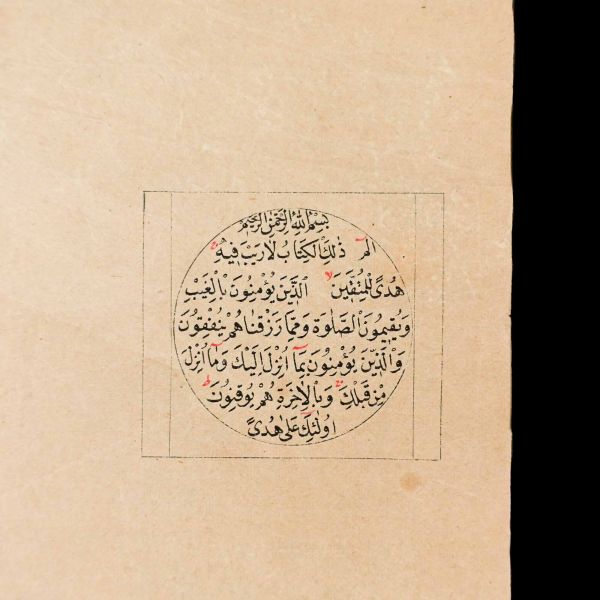 بِسْمِ اللّٰهِ الرَّحْمٰنِ الرَّحِيْمِ
الٓمٓ ذٰلِكَ الْكِتَابُ لَا رَيْبَ فِيْهِ
هُدًى لِلْمُتَّقِيْنَ الَّذِيْنَ يُؤْمِنُوْنَ بِالْغَيْبِ
وَيُقِيْمُوْنَ الصَّلٰوةَ وَمِمَّا رَزَقْنَاهُمْ يُنْفِقُوْنَ
وَالَّذِيْنَ يُؤْمِنُوْنَ بِمَٓا اُنْزِلَ اِلَيْكَ وَمَٓا اُنْزِلَ
مِنْ قَبْلِكَ وَبِالْاٰخِرَةِ هُمْ يُوْقِنُوْنَ
اُولٰٓئِكَ عَلٰى هُدًى